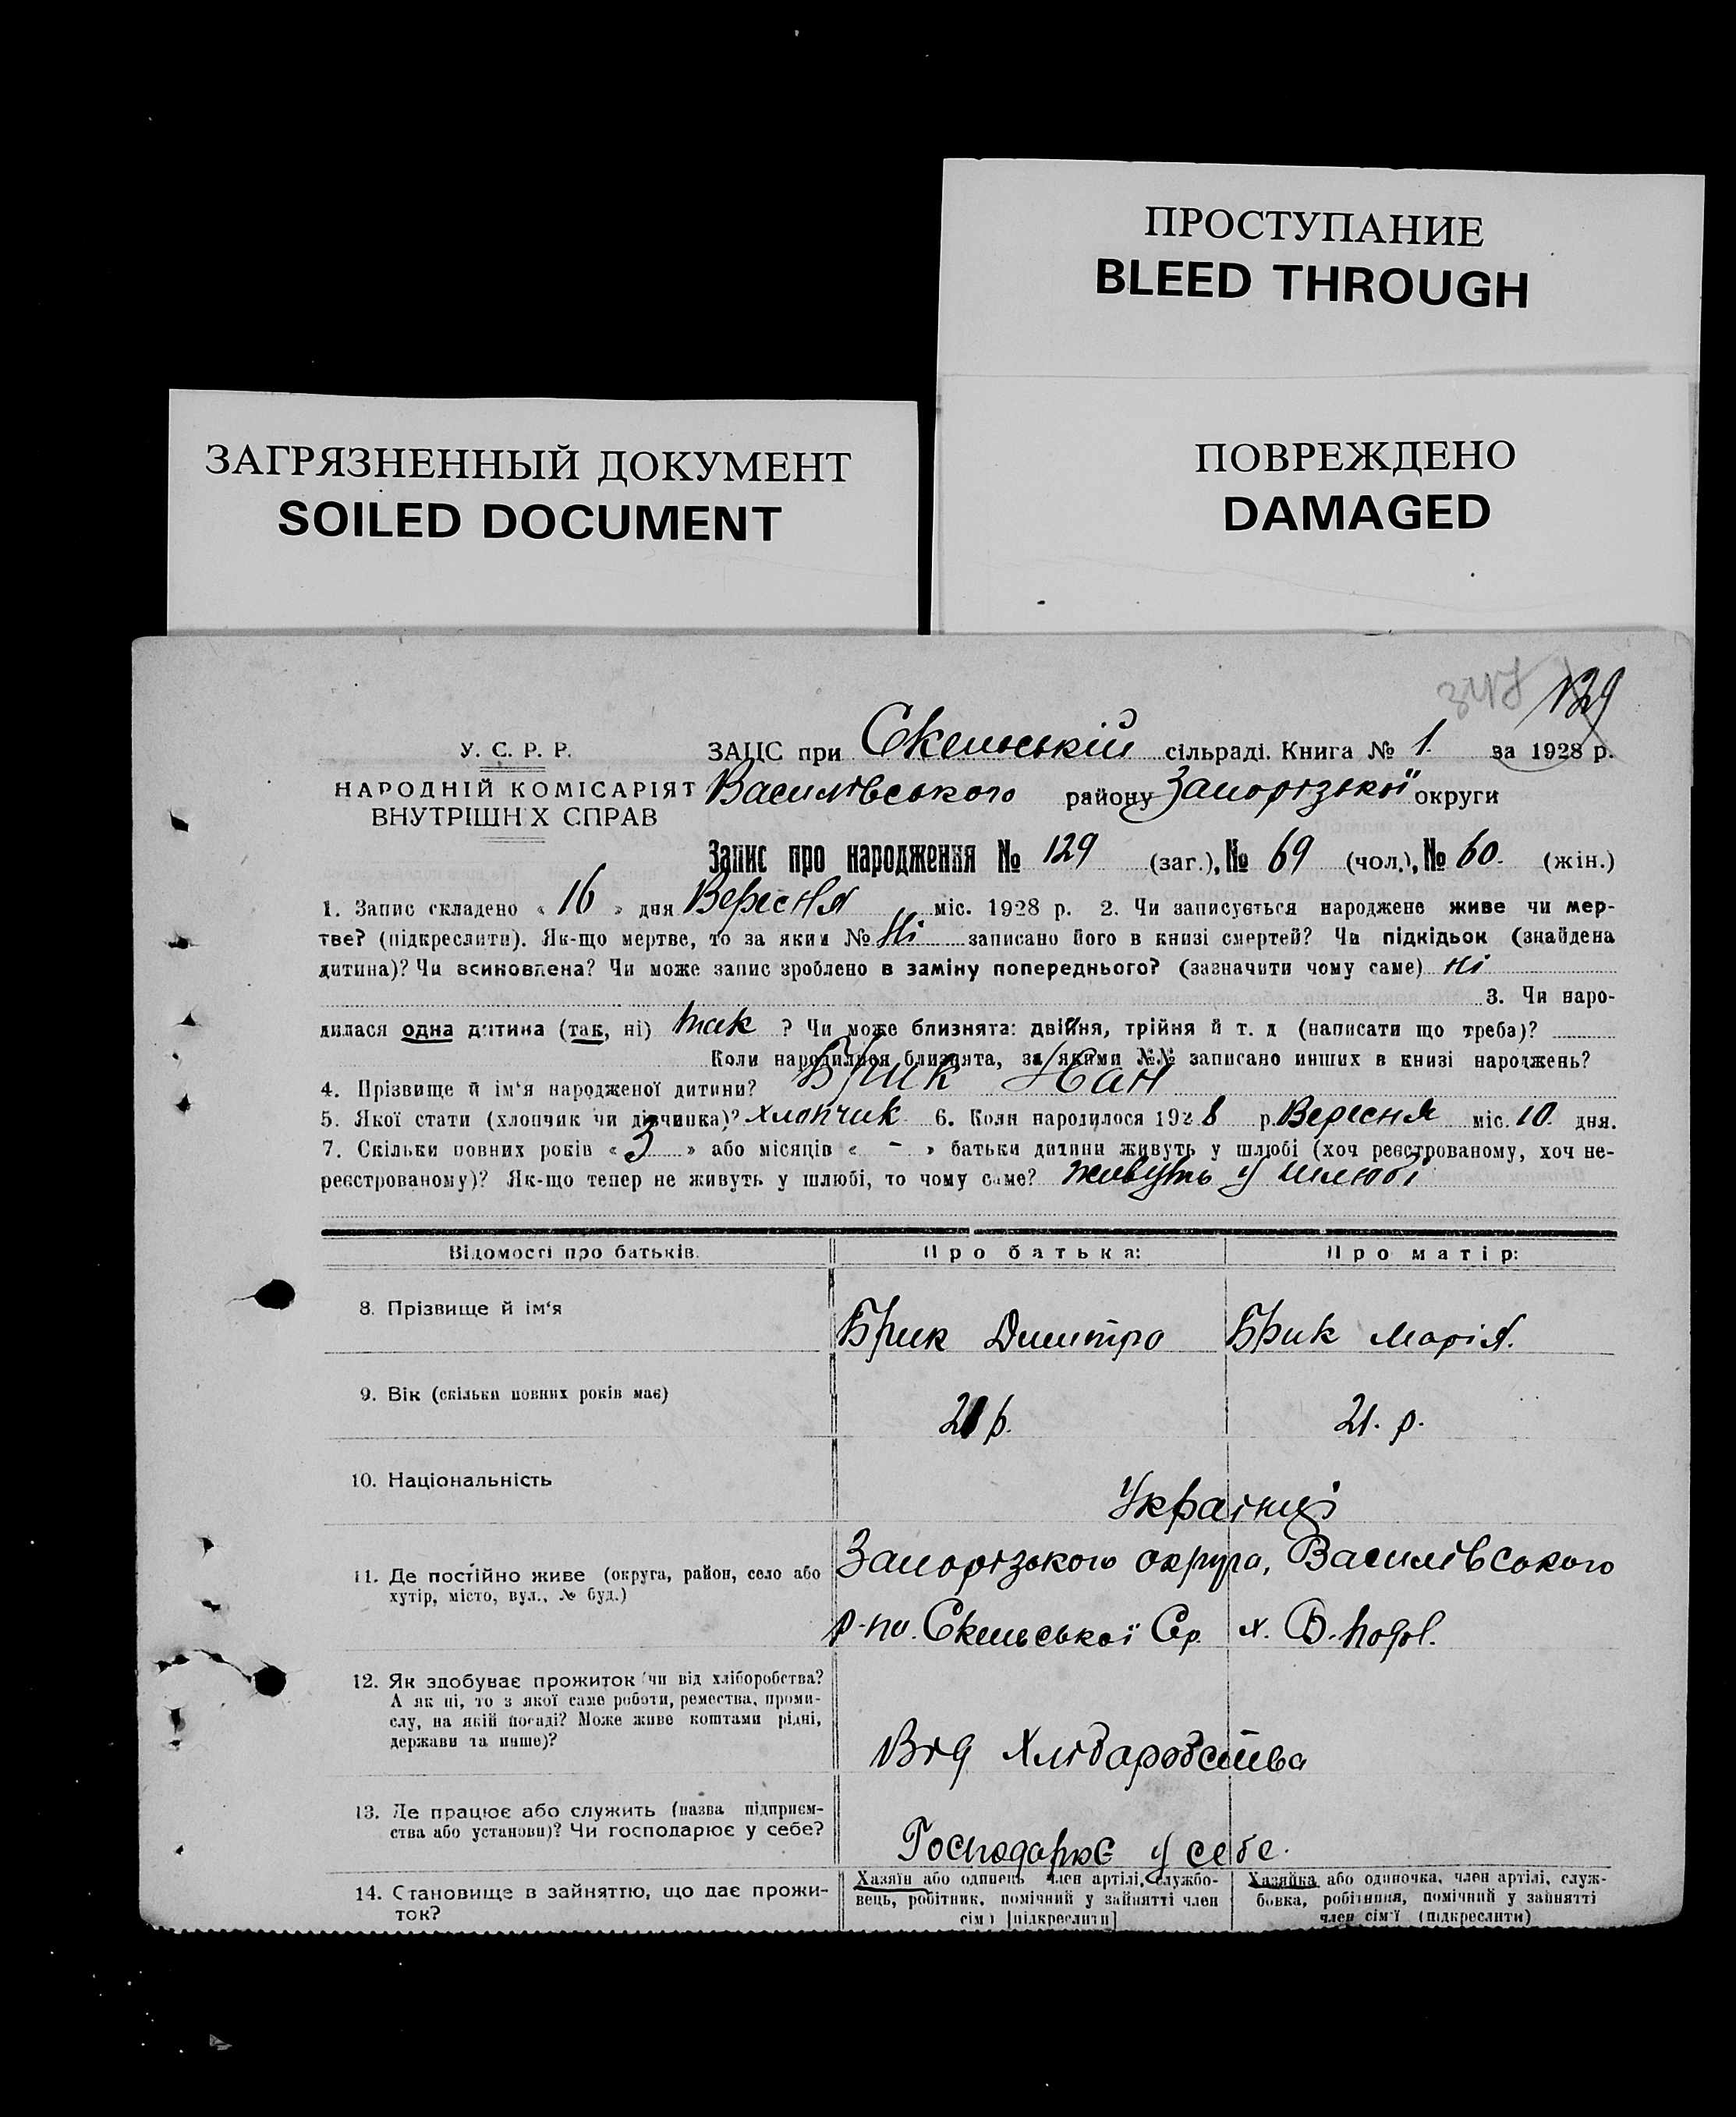 ПРОСТУПАНИЕ
BLEED THROUGH
ЗАГРЯЗНЕННЫЙ ДОКУМЕНТ
SOILED DOCUMENT
ПОВРЕЖДЕНО
DAMAGED
129
У. С. Р. Р.
НАРОДНІЙ КОМІСАРІЯТ
ВНУТРІШНІХ СПРАВ
ЗАЦС при Скельській сільраді. Книга № 1. за 1928 р.
Василівського району Запорізької округи
Запис про народження № 129 (заг.), № 69 (чол.), № 60. (жін.)
1. Запис складено « 16 » дня Вересня міс. 1928 р. 2. Чи записується народжене живе чи мер-
тве? (підкреслити). Як-що мертве, то за яким № Ні записано його в книзі смертей? Чи підкідьок (знайдена
дитина)? Чи всиновлена? Чи може запис зроблено в заміну попереднього? (зазначити чому саме) Ні
3. Чи наро-
дилася одна дитина (так, ні) так ? Чи може близнята: двійня, трійня й т. д (написати що треба)?
Коли народилися близнята, за якими №№ записано инших в книзі народжень?
4. Прізвище й ім'я народженої дитини? Брик Иван
5. Якої стати (хлопчик чи дівчинка)? хлопчик 6. Коли народилося 1928 р. Вересня міс. 10. дня.
7. Скільки повних років « 3 » або місяців « - » батьки дитини живуть у шлюбі (хоч реєстрованому, хоч не-
реєстрованому)? Як-що тепер не живуть у шлюбі, то чому саме? живуть у шлюбі
Відомості про батьків. Про батька: Про матір:
8. Прізвище й ім'я Брик Дмитро Брик Марія.
9. Вік (скільки повних років має) 21 р. 21. р.
10. Національність Українці
11. Де постійно живе (округа, район, село або
хутір, місто, вул., № буд.)
Запорізького округа, Василівського
р-ну. Скельської Ср. х.
12. Як здобуває прожиток (чи від хліборобства?
А як ні, то з якої саме роботи, ремества, проми-
слу, на якій посаді? Може живе коштами рідні,
держави та инше)?
Від Хліборобства
13. Де працює або служить (назва підприєм-
ства або установи)? Чи господарює у себе?
Господарює у себе.
14. Становище в зайняттю, що дає прожи-
ток?
Хазяїн або одинець член артілі, службо-
вець, робітник, помічний у зайнятті член
сім'ї [підкреслити]
Хазяйка або одиночка, член артілі, служ-
бовка, робітниця, помічний у зайнятті
член сім'ї (підкреслити)